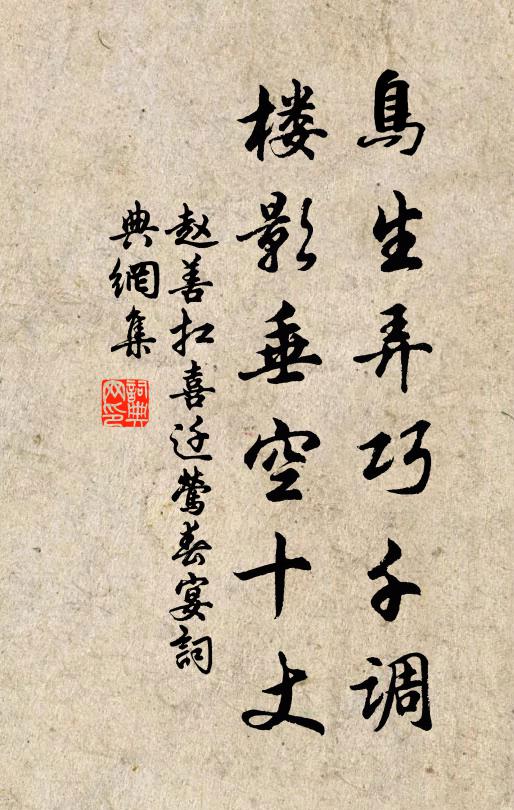 鳥生弄巧千調
楼影垂空十丈
赵善扛喜迁莺春宴詞
典網集
詞典网印